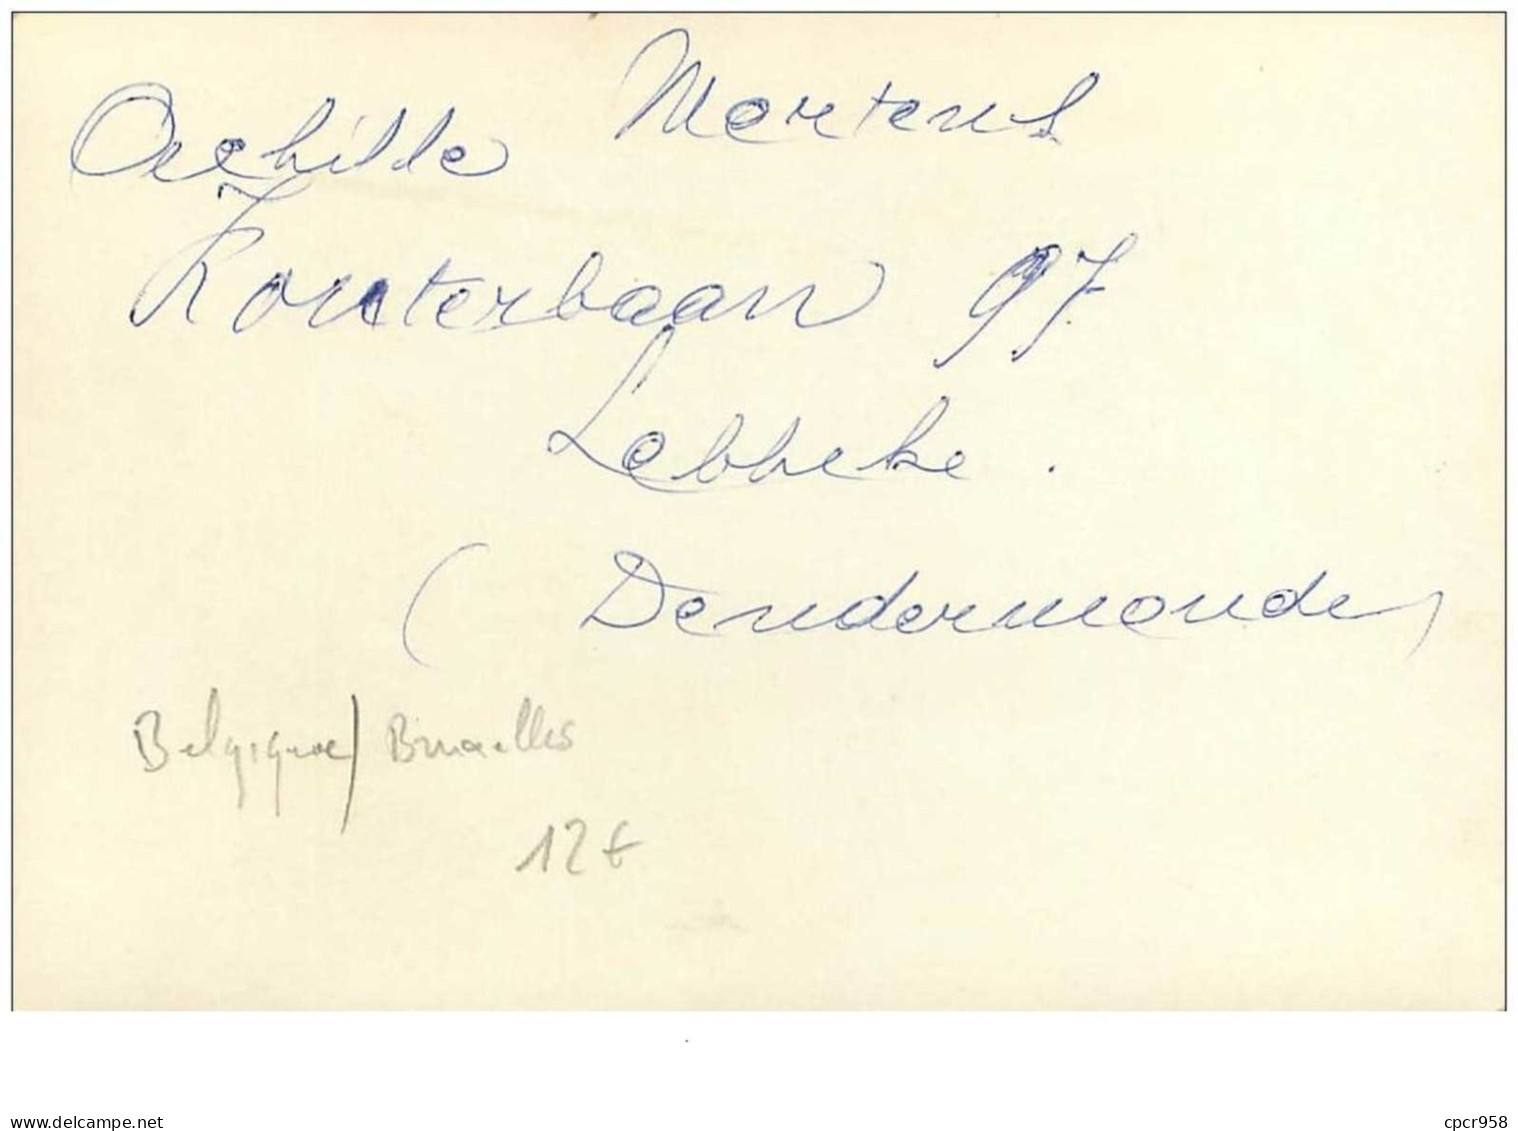 Achille Mertens
Kouterbaan 97
Lebbeke.
(Dendermonde)
Belgique/Bruxelles
12€
delcampe.net
cpcr958